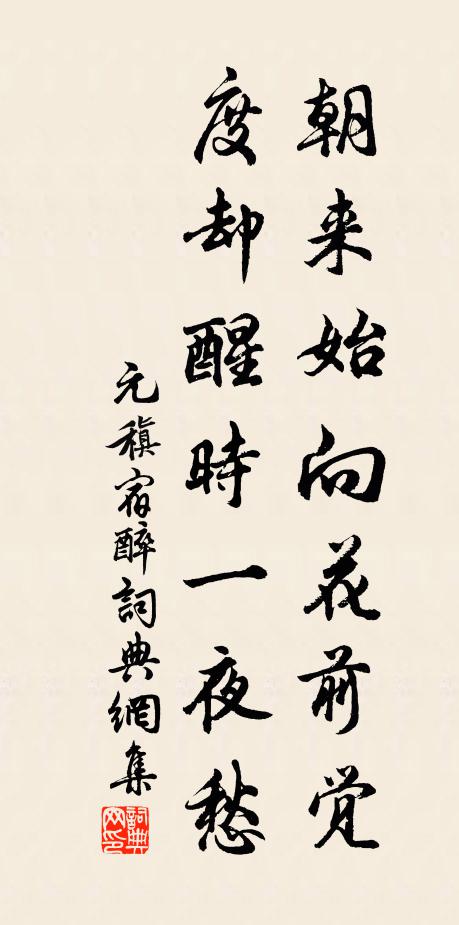 朝来始向花前觉
度却醒時一夜愁
元稹宿醉詞典網集
詞典
网印